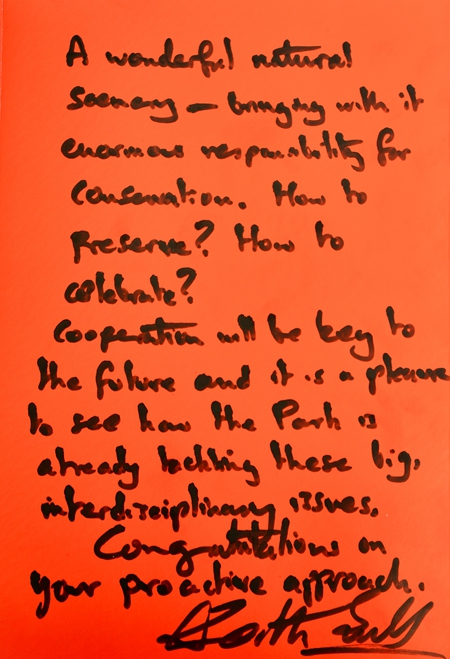 A wonderful natural
scenery – bringing with it
enormous responsibility for
conservation. How to
preserve? How to
celebrate?
Cooperation will be key to
the future and it is a pleasure
to see how the Park is
already tackling these big,
interdisciplinary issues.
Congratulations on
your proactive approach.
Keith